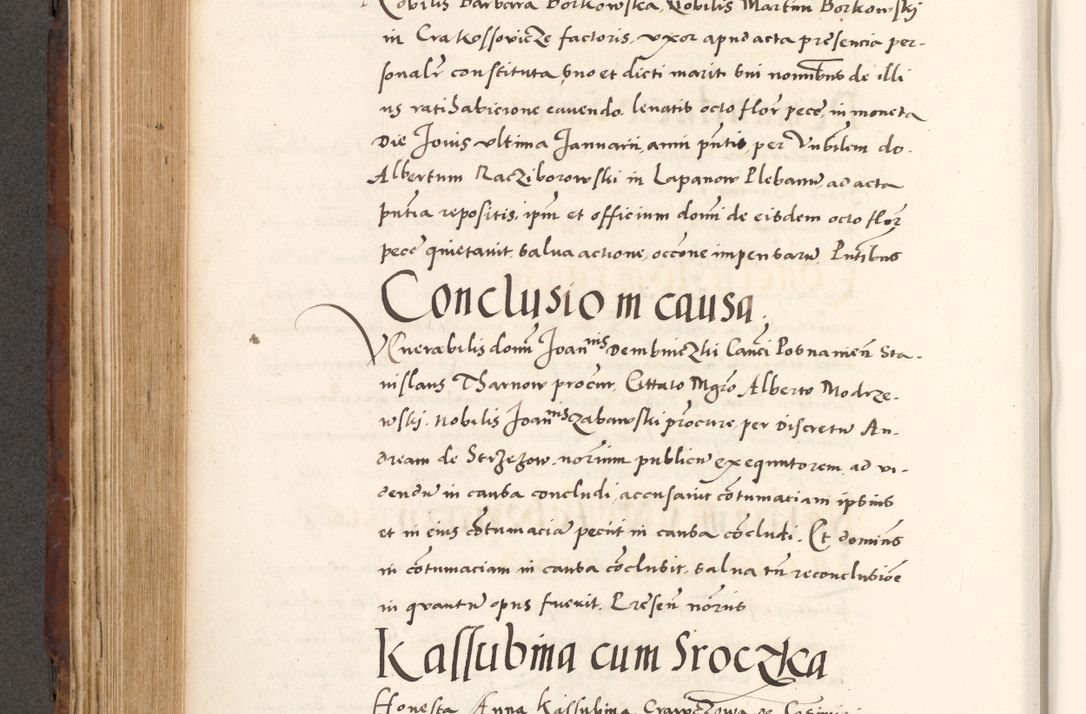 Nobilis Barbara Borkowska, Nobilis Martini Borkowski
in Crakossovicze factoris, vxor apud acta presencia per-
sonalr constituta suo et dicti mariti sui nominibus de illi
us ratihabicione cavendo. levatis octo flor pecc, in moneta
Die Jovis vltima Januarii, anni pntis, per Vnbilem do.
Albertum Racziborowski in Lapanow Plebanu, ad acta
pntia repositis, ipm et officium domi de eisdem octo flor
pecc quietavit, salva actione, occone impensaru. Pntibus
Conclusio in causa.
Venerabilis domi Joannis Dembiniczkii Canci Posnanien Sta-
nislaus Tharnow procur, Cittato Mgro Alberto Modrze-
wski. nobilis Joannis Czabawski procure, per Discretu An-
dream de Strzezow, norium publicu exequutorem, ad vi-
dendu in causa concludi, accusavit cotumatiam ipsius
et in eius cotumacia peciit in causa cocludi. Et dominus
in cotumaciam in causa coclusit, salva tn reconclusioe
in quantu opus fuerit. Presen noriis
Kassubina cum Sroczka
Honesta Anna Kassubina